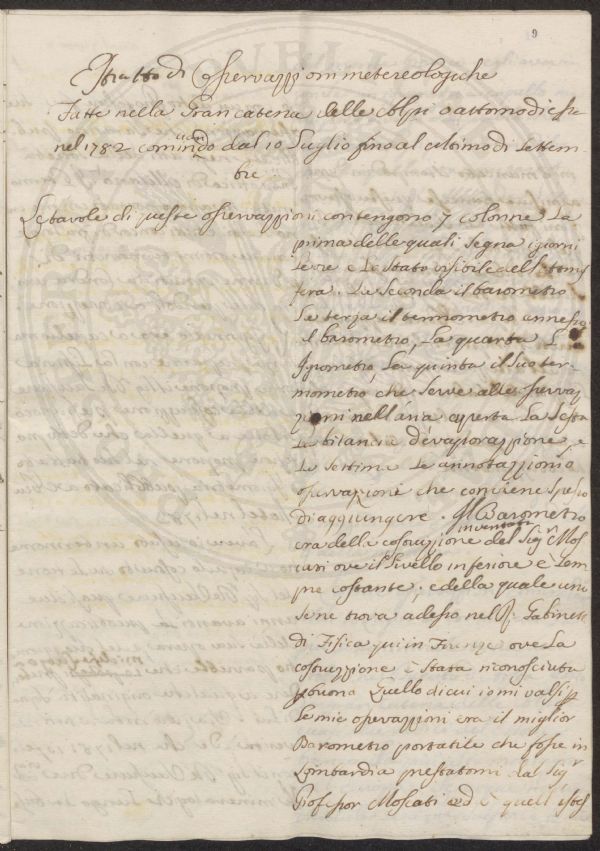 9
Estratto di Osservazzioni metereologiche
Fatte nella Gran catena delle Alpi o attorno di esse
nel 1782 cominciando dal 10 Luglio fino al ultimo di Settem-
bre.
Le tavole di queste osservazzioni contengono 7 colonne La
prima delle quali segna i giorni
le ore e lo stato visibile dell'atmos
fera. La seconda il barometro
La terza il termometro annesso
al barometro, La quarta L'
Igrometro, La quinta il suo ter-
mometro che serve alle osservaz
zioni nell'aria aperta La Sesta
La bilancia d'evaporazzione, e
La settima le annotazzioni o
osservazioni che conviene spesso
di aggiungere. Il Barometro
inventata
era della costruzzione del Sigr Mos
cati ove il livello inferiore è sem
pre costante, e della quale uno
se ne trova adesso nel R. Gabinetto
di Fisica qui in Firenze ove La
costruzzione è stata riconosciuta
buona Quello di cui io mi valsi p
le mie osservazzioni era il miglior
Barometro portatile che fosse in
Lombardia prestatomi dal Sigr
Professor Moscati ed è quell'istes